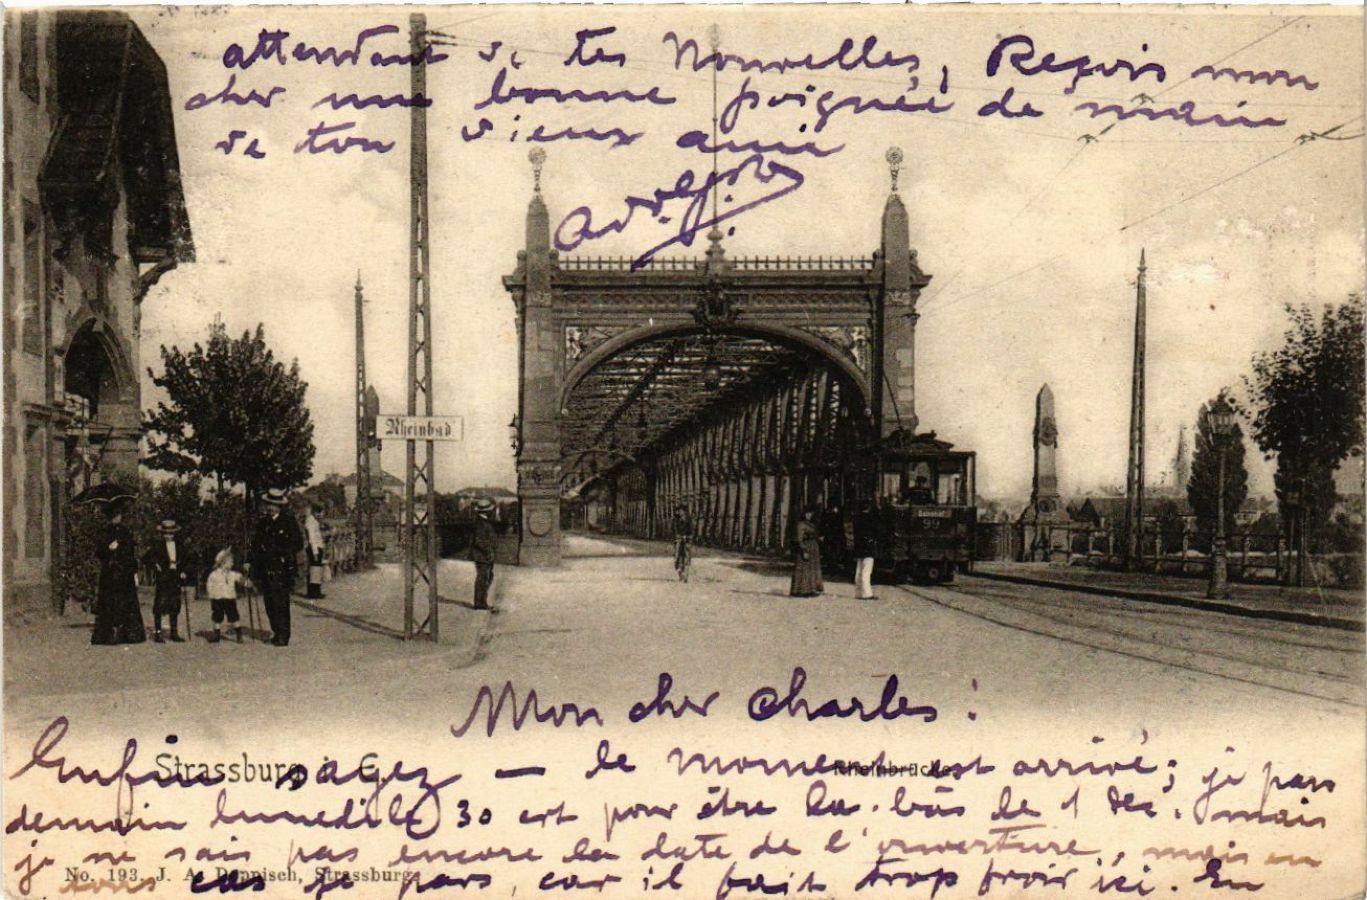 attendant de tes Nouvelles, Reçois mon
cher une bonne poignée de main
de ton vieux amie
Adolf
Rheinbad
99
Mon cher Charles!
Strassburg i. E.
Rheinbrücke
Enfin — le moment est arrivé; je pars
demain lunedi le 30 ect pour être la-bàs le 1 Dec. mais
je ne sais pas encore la date de l'ouverture, mais en
tous cas je pars, car il fait trop froir ici. En
No. 193. J. A. Deppisch, Strassburg.